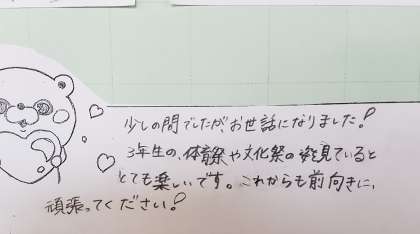 少しの間でしたが、お世話になりました!
3年生の、体育祭や文化祭の姿見ていると
とても楽しいです。これからも前向きに、
頑張ってください!